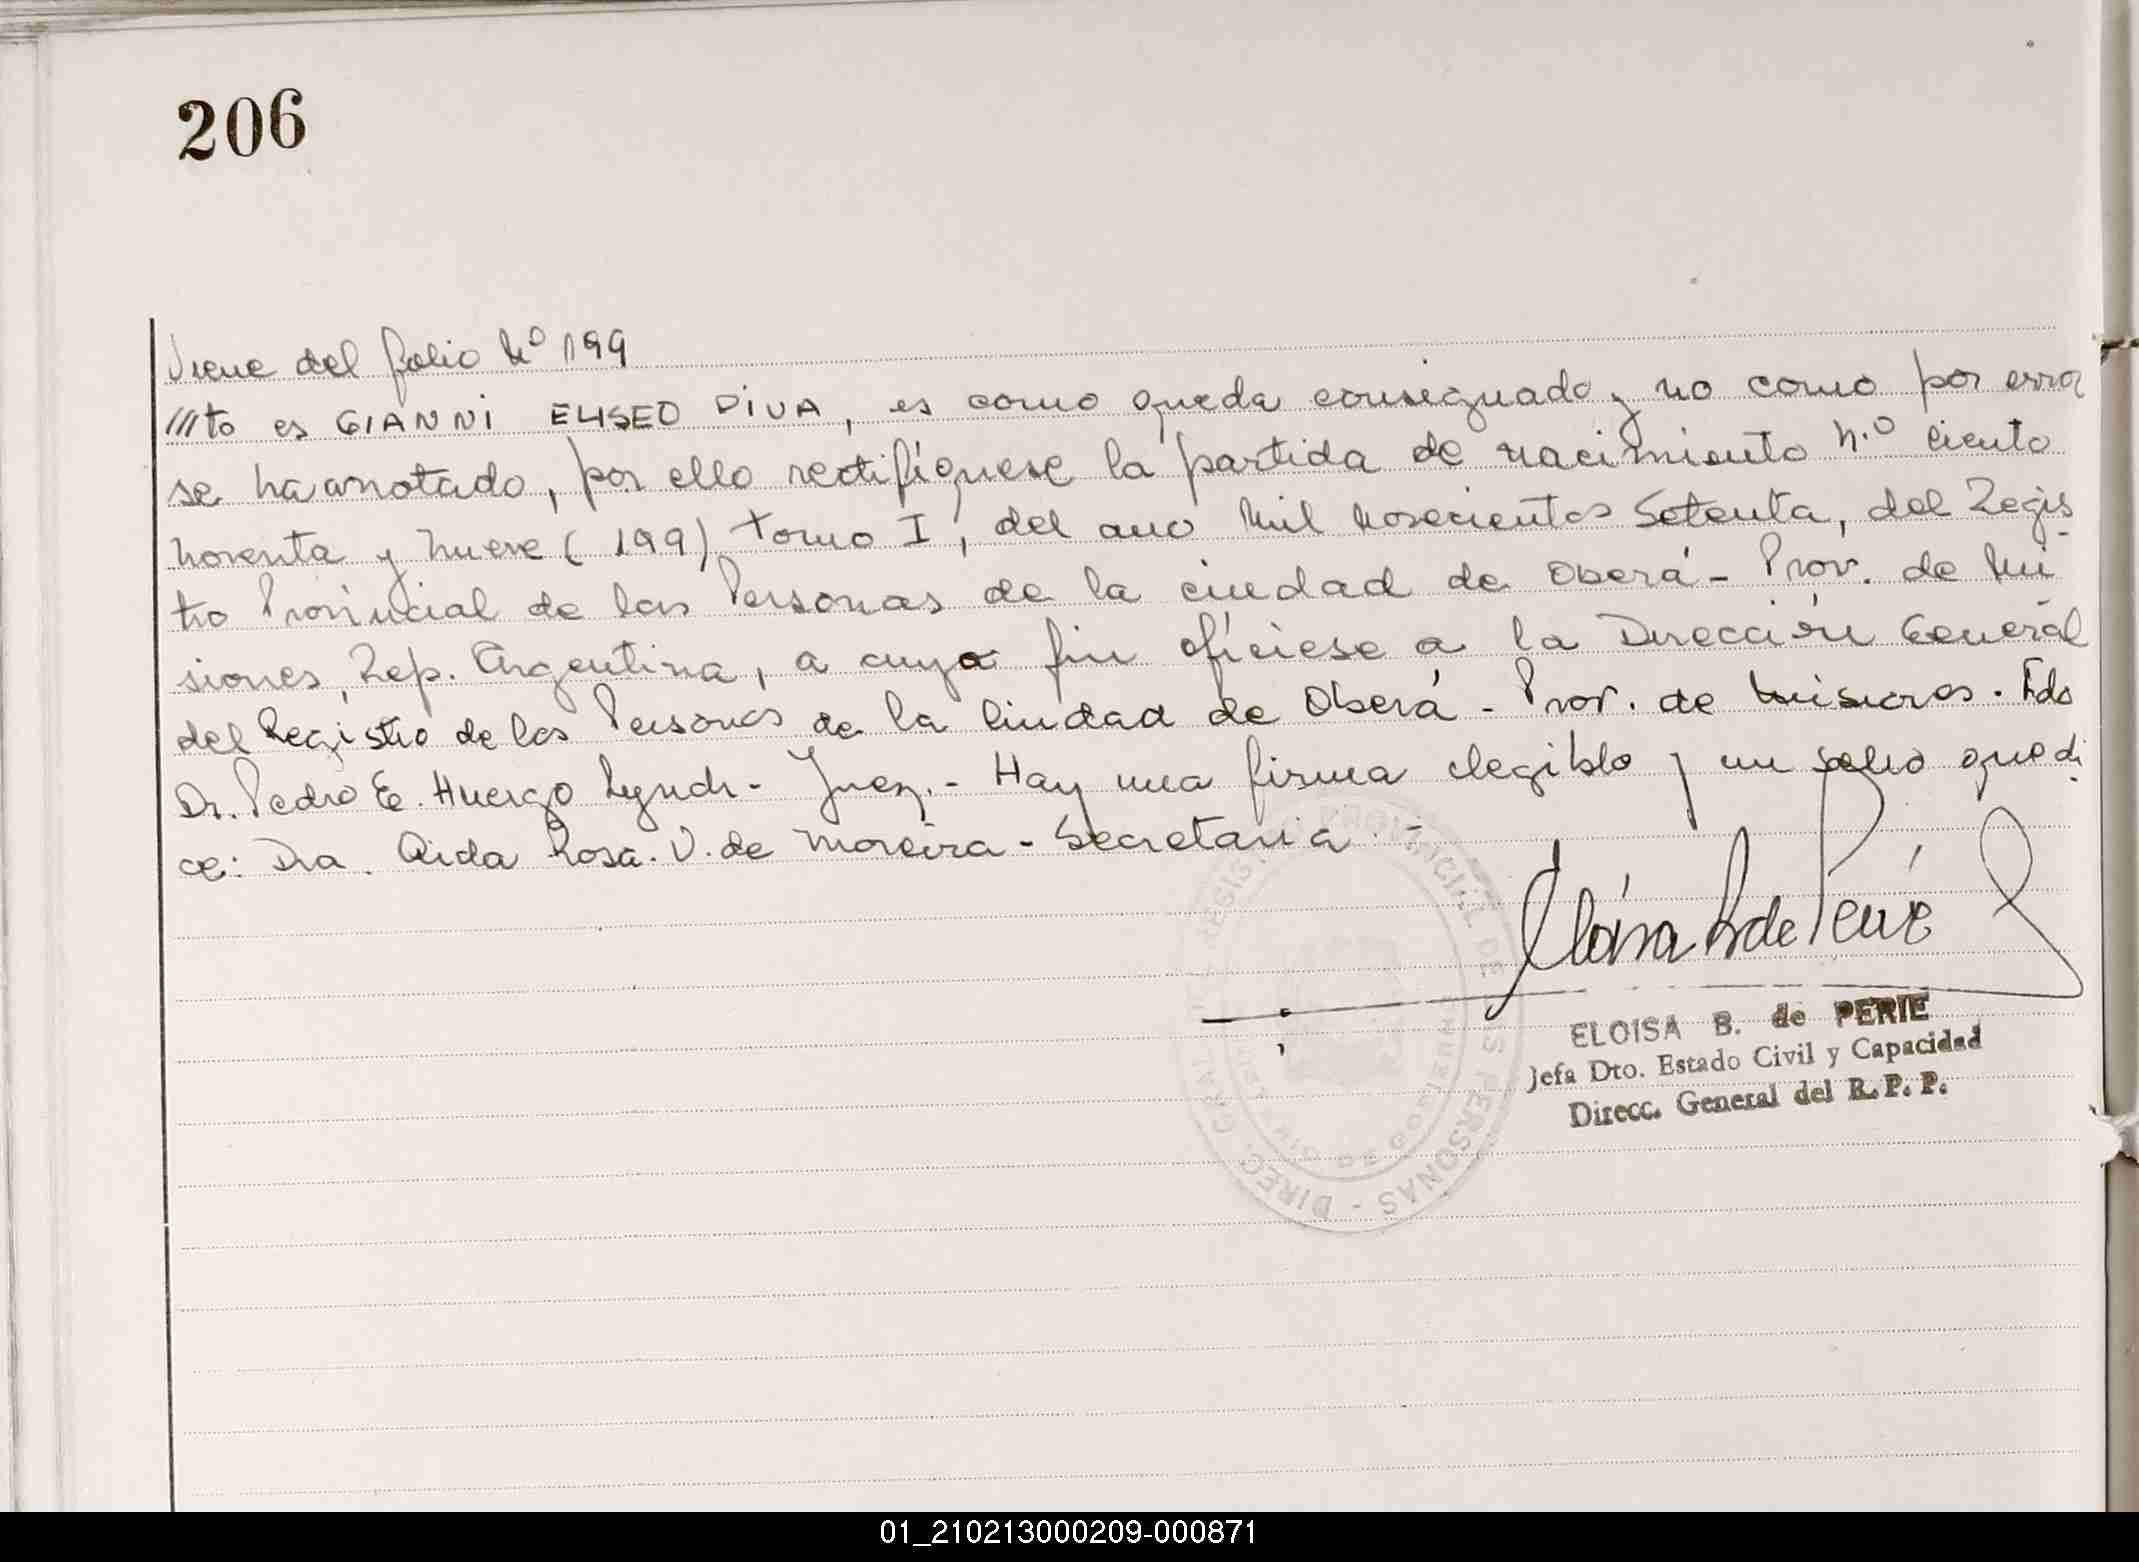 206
Viene del folio Nº 199
///to es GIANNI ELISEO PIVA, es como queda consignado y no como por error
se ha anotado, por ello rectifíquese la partida de nacimiento N.º ciento
noventa y nueve (199) Tomo I, del año Mil Novecientos Setenta, del Regis
tro Provincial de las Personas de la ciudad de Oberá - Prov. de Mi
siones, Rep. Argentina, a cuyo fin ofíciese a la Dirección General
del Registro de las Personas de la Ciudad de Oberá - Prov. de Misiones. Fdo
Dr. Pedro E. Huergo Lynch - Juez. - Hay una firma elegible y un sello que di
ce: Dra. Aida Rosa. V. de Moreira - Secretaria . -
Eloisa B de Perié
ELOISA B. de PERIE
Jefa Dto. Estado Civil y Capacidad
Direcc. General del R. P. P.
DIREC. GRAL. REGISTRO PROVINCIAL DE LAS PERSONAS -
01_210213000209-000871